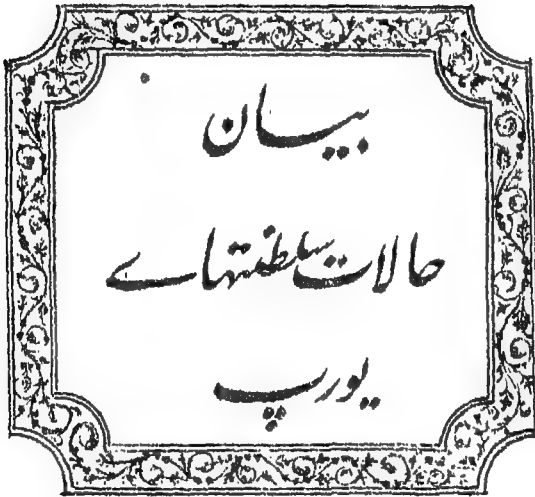 بیان
حالات سلطنتہاے
یورپ